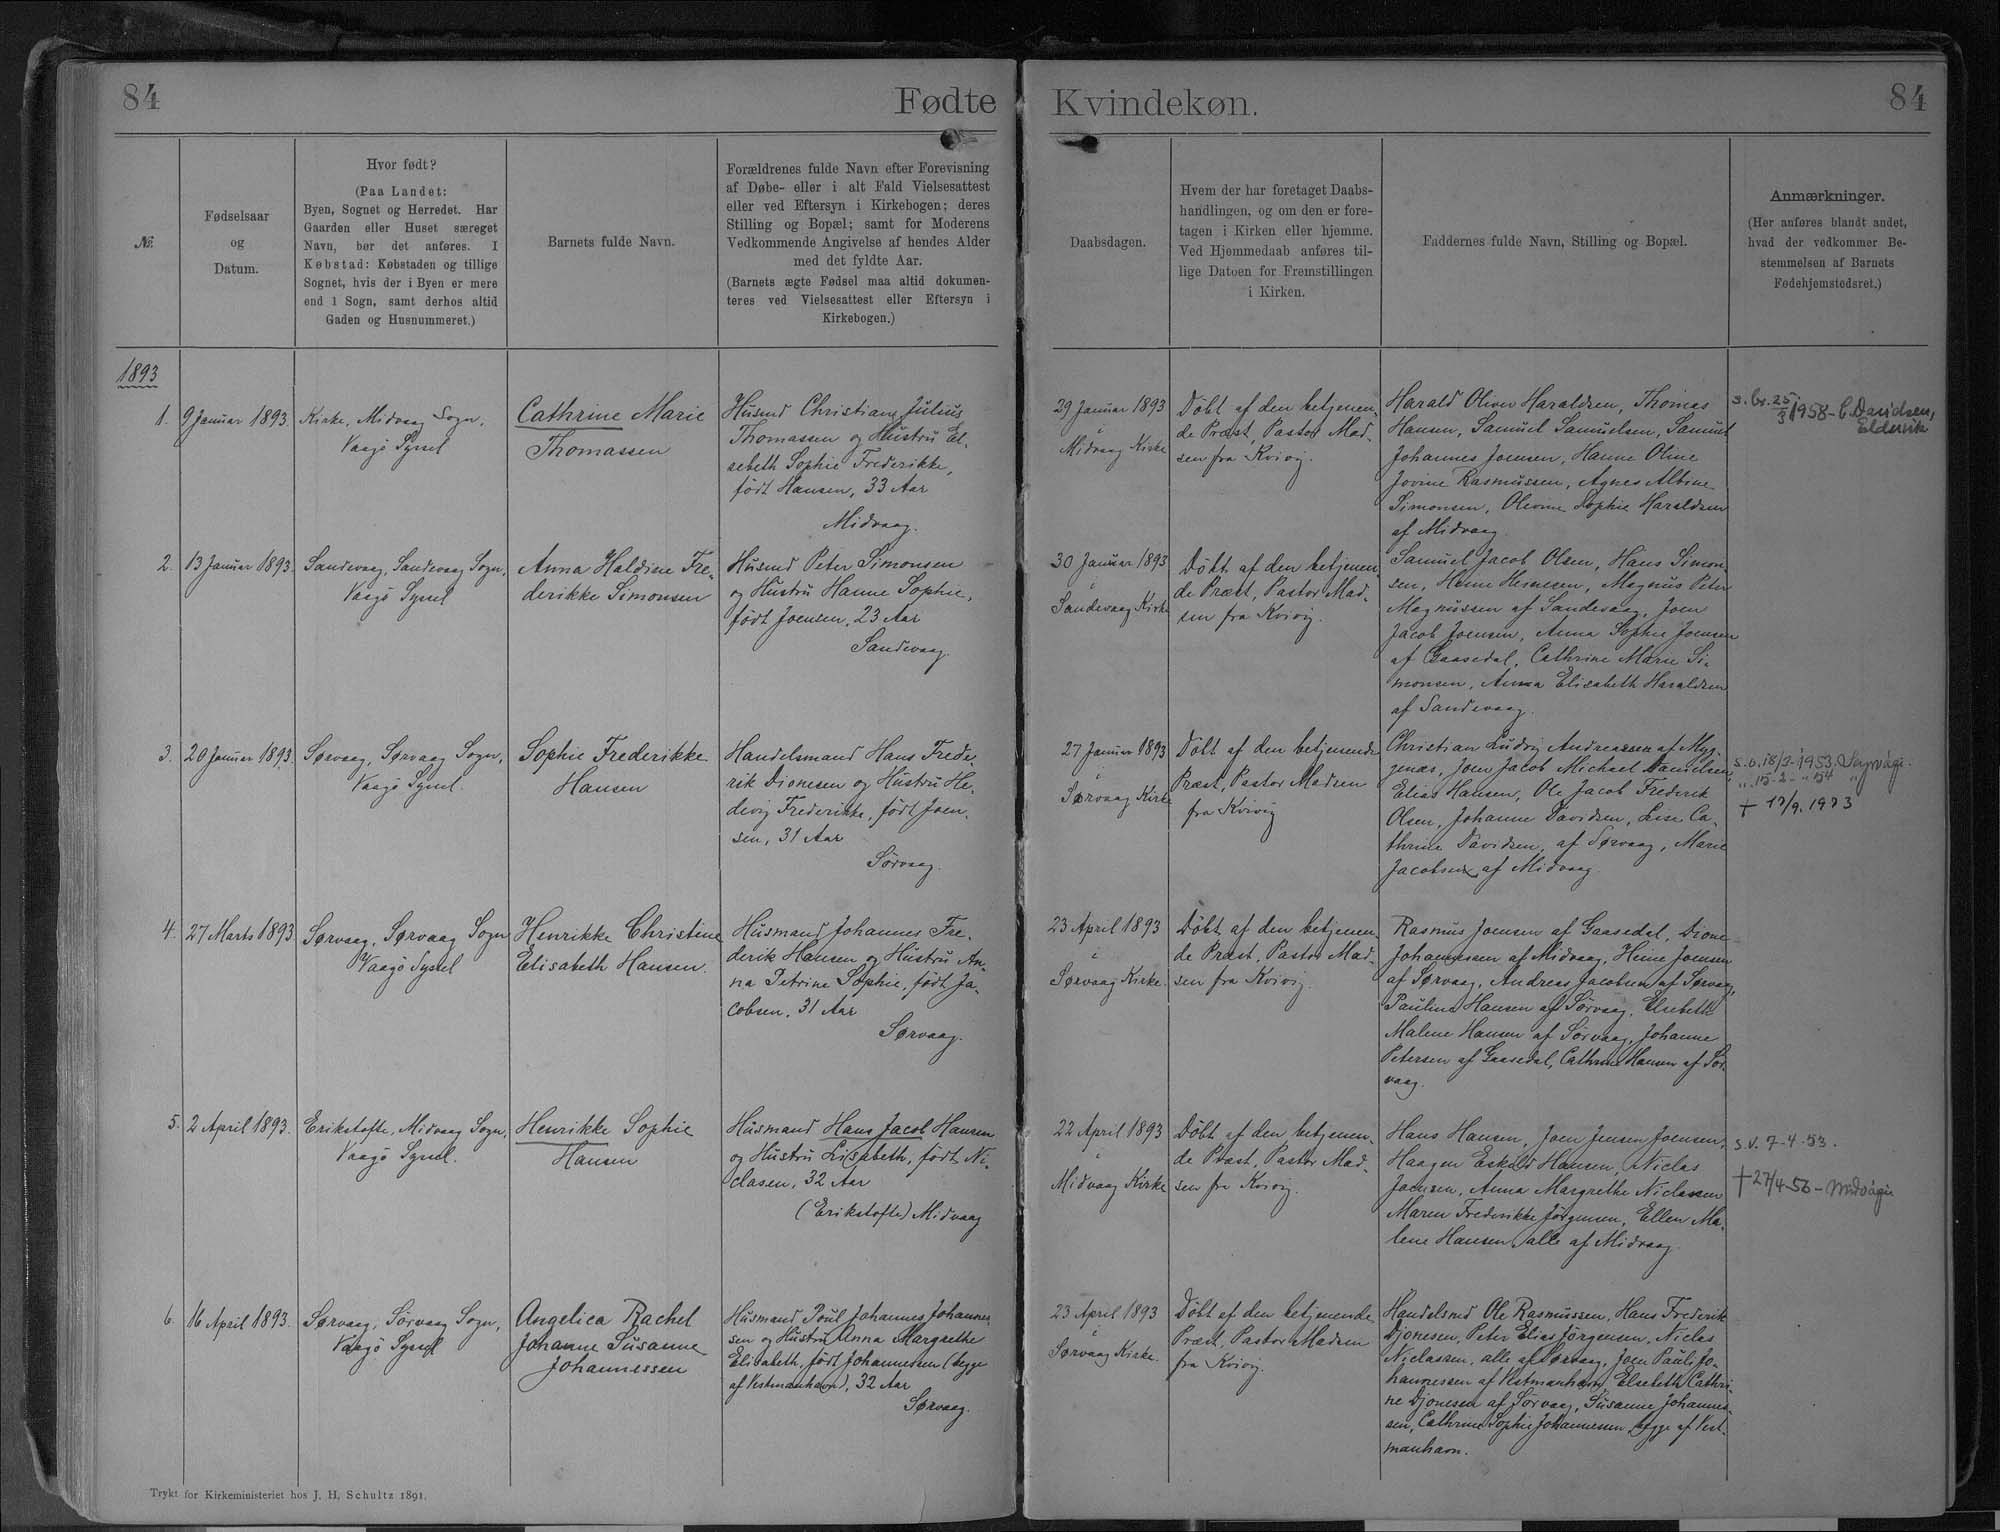 84
Fødte
Kvindekøn.
84
№.
Fødselsaar
og
Datum.
Hvor født?
(Paa Landet:
Byen, Sognet og Herredet. Har
Gaarden eller Huset særeget
Navn, bør det anføres. I
Købstad: Købstaden og tillige
Sognet, hvis der i Byen er mere
end 1 Sogn, samt derhos altid
Gaden og Husnummeret.)
Barnets fulde Navn.
Forældrenes fulde Navn efter Forevisning
af Døbe- eller i alt Fald Vielsesattest
eller ved Eftersyn i Kirkebogen; deres
Stilling og Bopæl; samt for Moderens
Vedkommende Angivelse af hendes Alder
med det fyldte Aar.
(Barnets ægte Fødsel maa altid dokumen-
teres ved Vielsesattest eller Eftersyn i
Kirkebogen.)
Daabsdagen.
Hvem der har foretaget Daabs-
handlingen, og om den er fore-
tagen i Kirken eller hjemme.
Ved Hjemmedaab anføres til-
lige Datoen for Fremstillingen
i Kirken.
Faddernes fulde Navn, Stilling og Bopæl.
Anmærkninger.
(Her anføres blandt andet,
hvad der vedkommer Be-
stemmelsen af Barnets
Fødehjemstedsret.)
1893
1.
9 Januar 1893.
Kirke, Midvaag Sogn,
Vaagö Syssel
Cathrine Marie
Thomassen
Husmd Christian Julius
Thomassen og Hustru El-
sebeth Sophie Frederikke,
født Hansen, 33 Aar
Midvaag.
29 Januar 1893
i
Midvaag Kirke
Döbt af den betjenen-
de Præst, Pastor Mad-
sen fra Kvivig.
Harald Oliver Haraldsen, Thomas
Hansen, Samuel Samuelsen, Samuel
Johannes Joensen, Hanne Oline
Jovine Rasmussen, Agnes Albine
Simonsen, Olevine Sophie Haraldsen
af Midvaag
s. br. 25/3 1958 - C. Davidsen,
Eldevik
2.
13 Januar 1893.
Sandevaag, Sandevaag Sogn,
Vaagö Syssel
Anna Haldine Fre-
derikke Simonsen
Husmd Peter Simonsen
og Hustru Hanne Sophie,
født Joensen, 23 Aar
Sandevaag.
30 Januar 1893
i
Sandevaag Kirke
Döbt af den betjenen-
de Præst, Pastor Mad-
sen fra Kvivig.
Samuel Jacob Olsen, Hans Simon-
sen, Heine Heinesen, Magnus Peter
Magnussen af Sandevaag, Joen
Jacob Joensen, Anna Sophie Joensen
af Gaasedal, Cathrine Marie Si-
monsen, Anna Elisabeth Haraldsen
af Sandevaag.
3.
20 Januar 1893.
Sørvaag, Sørvaag Sogn,
Vaagö Syssel.
Sophie Frederikke
Hansen
Handelsmand Hans Frede-
rik Dionesen og Hustru He-
devig Frederikke, født Joen-
sen, 31 Aar
Sörvaag.
27 Januar 1893
i
Sørvaag Kirke
Döbt af den betjenende
Præst, Pastor Madsen
fra Kvivig
Christian Ludvig Andreassen af Myg-
genæs, Joen Jacob Michael Danielsen,
Elias Hansen, Ole Jacob Frederik
Olsen, Johanne Davidsen, Lise Ca-
thrine Davidsen, af Sørvaag, Marie
Jacobsen af Midvaag.
s.v. 18/2-1953. Sørvági.
" 15-2-"54 "
† 17/9. 1973
4.
27 Marts 1893.
Sørvaag, Sørvaag Sogn
Vaagö Syssel
Henrikke Christine
Elisabeth Hansen.
Husmand Johannes Fre-
derik Hansen og Hustru An-
na Petrine Sophie, født Ja-
cobsen, 31 Aar
Sørvaag.
23 April 1893
i
Sørvaag Kirke.
Döbt af den betjenen-
de Præst, Pastor Mad-
sen fra Kvivig.
Rasmus Joensen af Gaasedal, Dione
Johannesen af Midvaag, Heine Joensen
af Sørvaag, Andreas Jacobsen af Sørvaag,
Pauline Hansen af Sörvaag, Elsebeth
Malene Hansen af Sörvaag, Johanne
Petersen af Gaasedal, Cathrine Hansen af Sör-
vaag.
5.
2 April 1893.
Erikstofte, Midvaag Sogn,
Vaagö Syssel.
Henrikke Sophie
Hansen
Husmand Hans Jacob Hansen
og Hustru Lisabeth, født Ni-
clasen, 32 Aar
(Erikstofte) Midvaag
22 April 1893
i
Midvaag Kirke
Döbt af den betjenen-
de Præst, Pastor Mad-
sen fra Kvivig.
Hans Hansen, Joen Jensen Joensen,
Haagen Eskild Hansen, Niclas
Joensen, Anna Margrethe Niclassen
Maren Frederikke Jörgensen, Ellen Ma-
lene Hansen, alle af Midvaag.
s.v. 7-4-53.
† 27/4 56 - Miðvági
6.
16 April 1893.
Sørvaag, Sörvaag Sogn,
Vaagö Syssel
Angelica Rachel
Johanne Susanne
Johannessen
Husmand Poul Johannes Johannes-
sen og Hustru Anna Margrethe
Elisabeth, født Johannessen (begge
af Vestmanhavn), 32 Aar
Sørvaag.
23 April 1893
i
Sørvaag Kirke.
Döbt af den betjenende
Præst, Pastor Madsen
fra Kvivig.
Handelsmd Ole Rasmussen, Hans Frederik
Djonesen, Peter Elias Jörgensen, Niclas
Niclassen, alle af Sørvaag, Joen Pauli Jo-
hannessen af Vestmanhavn, Elsebeth Cathri-
ne Djonesen af Sörvaag, Susanne Johannes-
sen, Cathrine Sophie Johannessen, begge af Vest-
manhavn.
Trykt for Kirkeministeriet hos J. H. Schultz 1891.